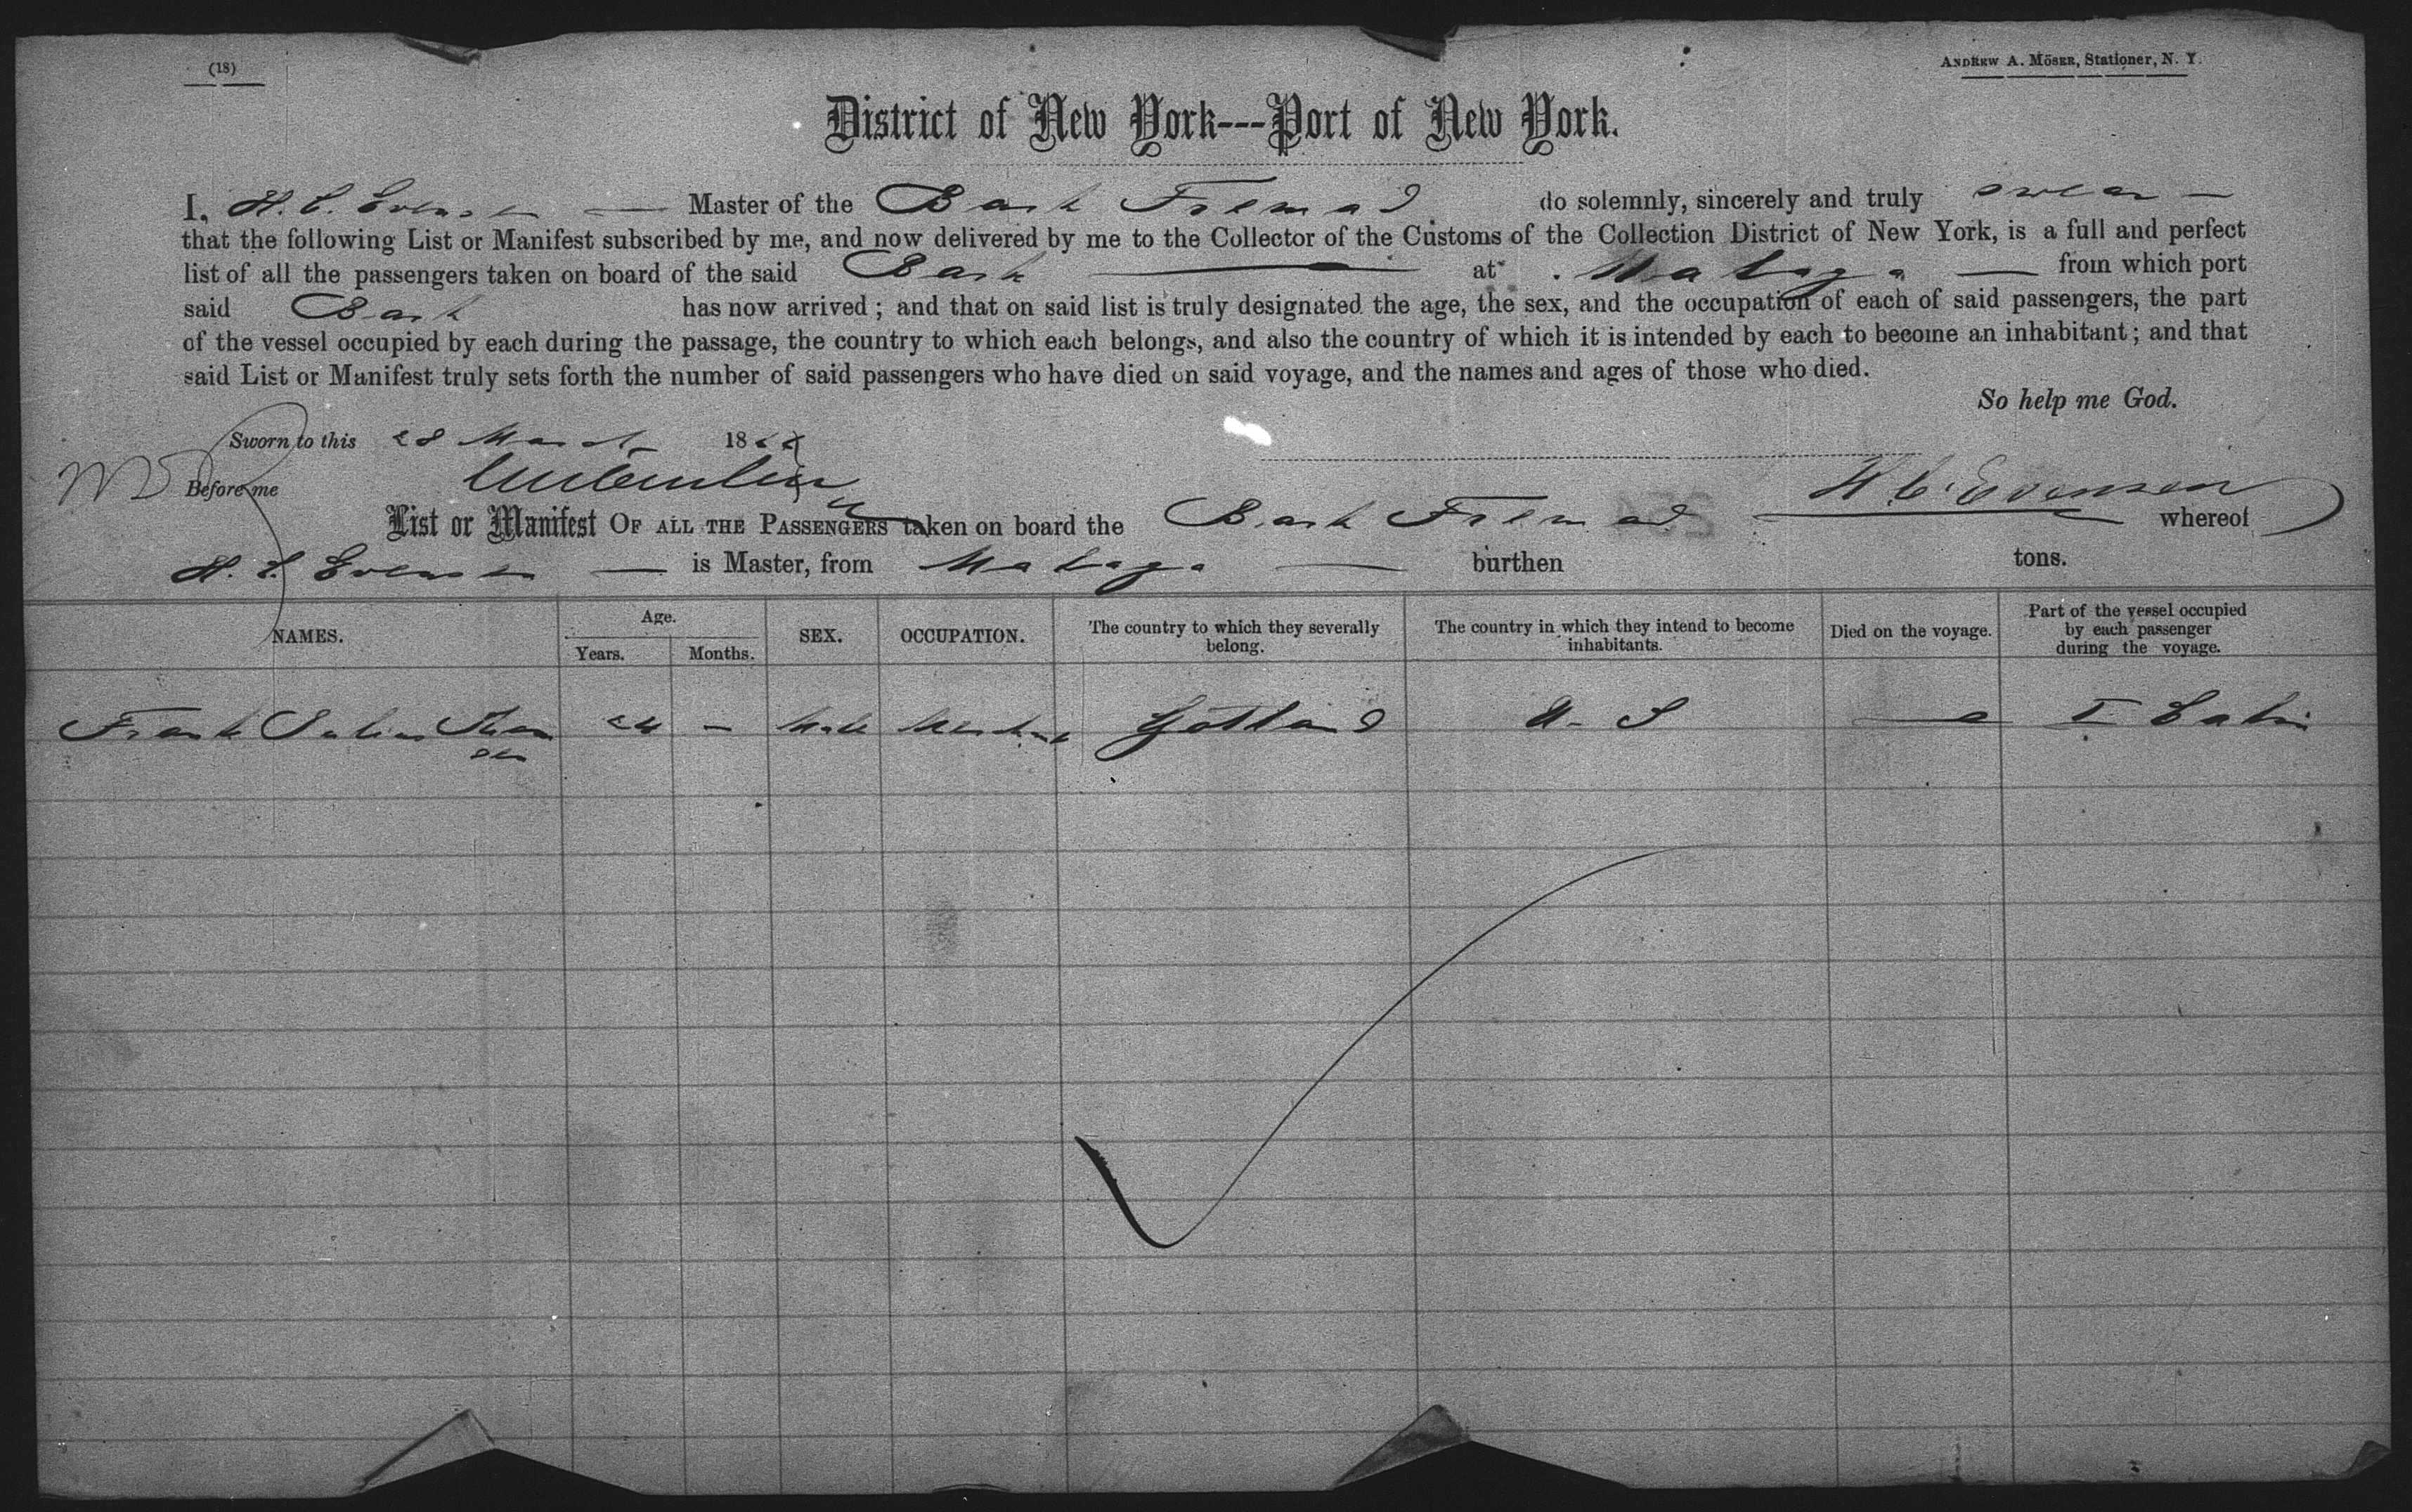 (18)
ANDREW A. MÖSER, Stationer, N. Y.
District of New York---Port of New York.
I, H. C. Evensen — Master of the Bark Fremad do solemnly, sincerely and truly swear —
that the following List or Manifest subscribed by me, and now delivered by me to the Collector of the Customs of the Collection District of New York, is a full and perfect
list of all the passengers taken on board of the said Bark — at Malaga — from which port
said Bark has now arrived ; and that on said list is truly designated the age, the sex, and the occupation of each of said passengers, the part
of the vessel occupied by each during the passage, the country to which each belongs, and also the country of which it is intended by each to become an inhabitant ; and that
said List or Manifest truly sets forth the number of said passengers who have died on said voyage, and the names and ages of those who died.
So help me God.
Sworn to this 28 March 18
Before me
H. C. Evensen
List or Manifest OF ALL THE PASSENGERS taken on board the Bark Fremad — whereof
H. C. Evensen — is Master, from Malaga — burthen tons.
NAMES. Age. Years. Months. SEX. OCCUPATION. The country to which they severally belong. The country in which they intend to become inhabitants. Died on the voyage. Part of the vessel occupied by each passenger during the voyage.
Frank 24 — Male Gottland U. S — I Cabin